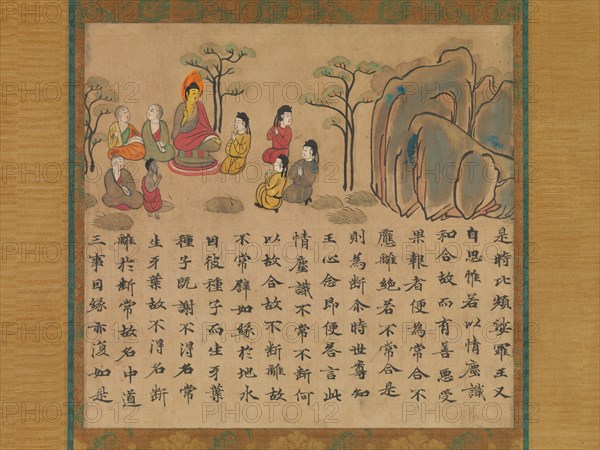 是時比頻娑羅王又
自思惟若以情塵識
和合故而有善惡受
果報者便為常合不
應離絕若不常合是
則為斷尒時世尊知
王心念即便荅言此
情塵識不常不斷何
以故合故不斷離故
不常譬如緣於地水
因彼種子而生牙葉
種子既謝不得名常
生牙葉故不得名斷
離於斷常故名中道
三事因緣亦復如是
PHOTO12